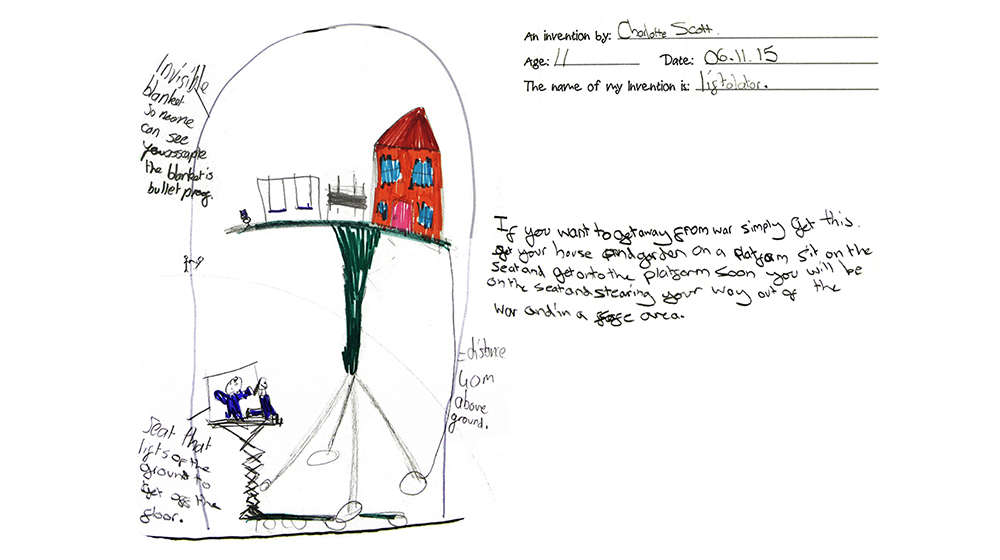 An invention by: Charlotte Scott.
Age: 11 Date: 06.11.15
The name of my invention is: Liftolator.
Invisible
blanket
So noone
can see
you
the blanket is
bullet proof.
If you want to get away from war simply get this.
get your house and garden on a platform sit on the
seat and get onto the platform soon you will be
on the seat and stearing your way out of the
war and in a safe area.
distance
40m
above
ground.
Seat that
lifts of the
ground to
get off the
floor.